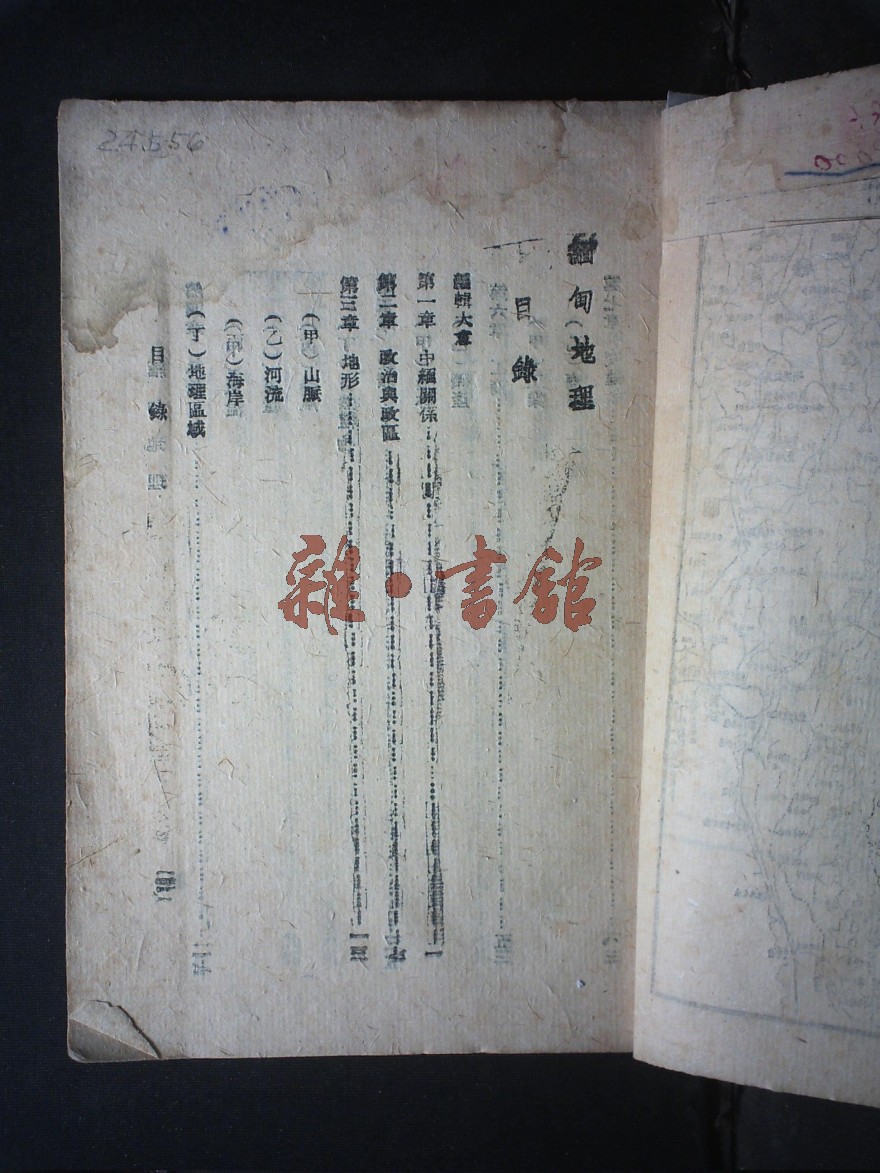 緬甸地理
目錄
編輯大意
第一章 中緬關係……一
第二章 政治與政區……
第三章 地形……
(甲)山脈
(乙)河流
(丙)海岸
(丁)地理區域……
目錄
24556
雜·書館